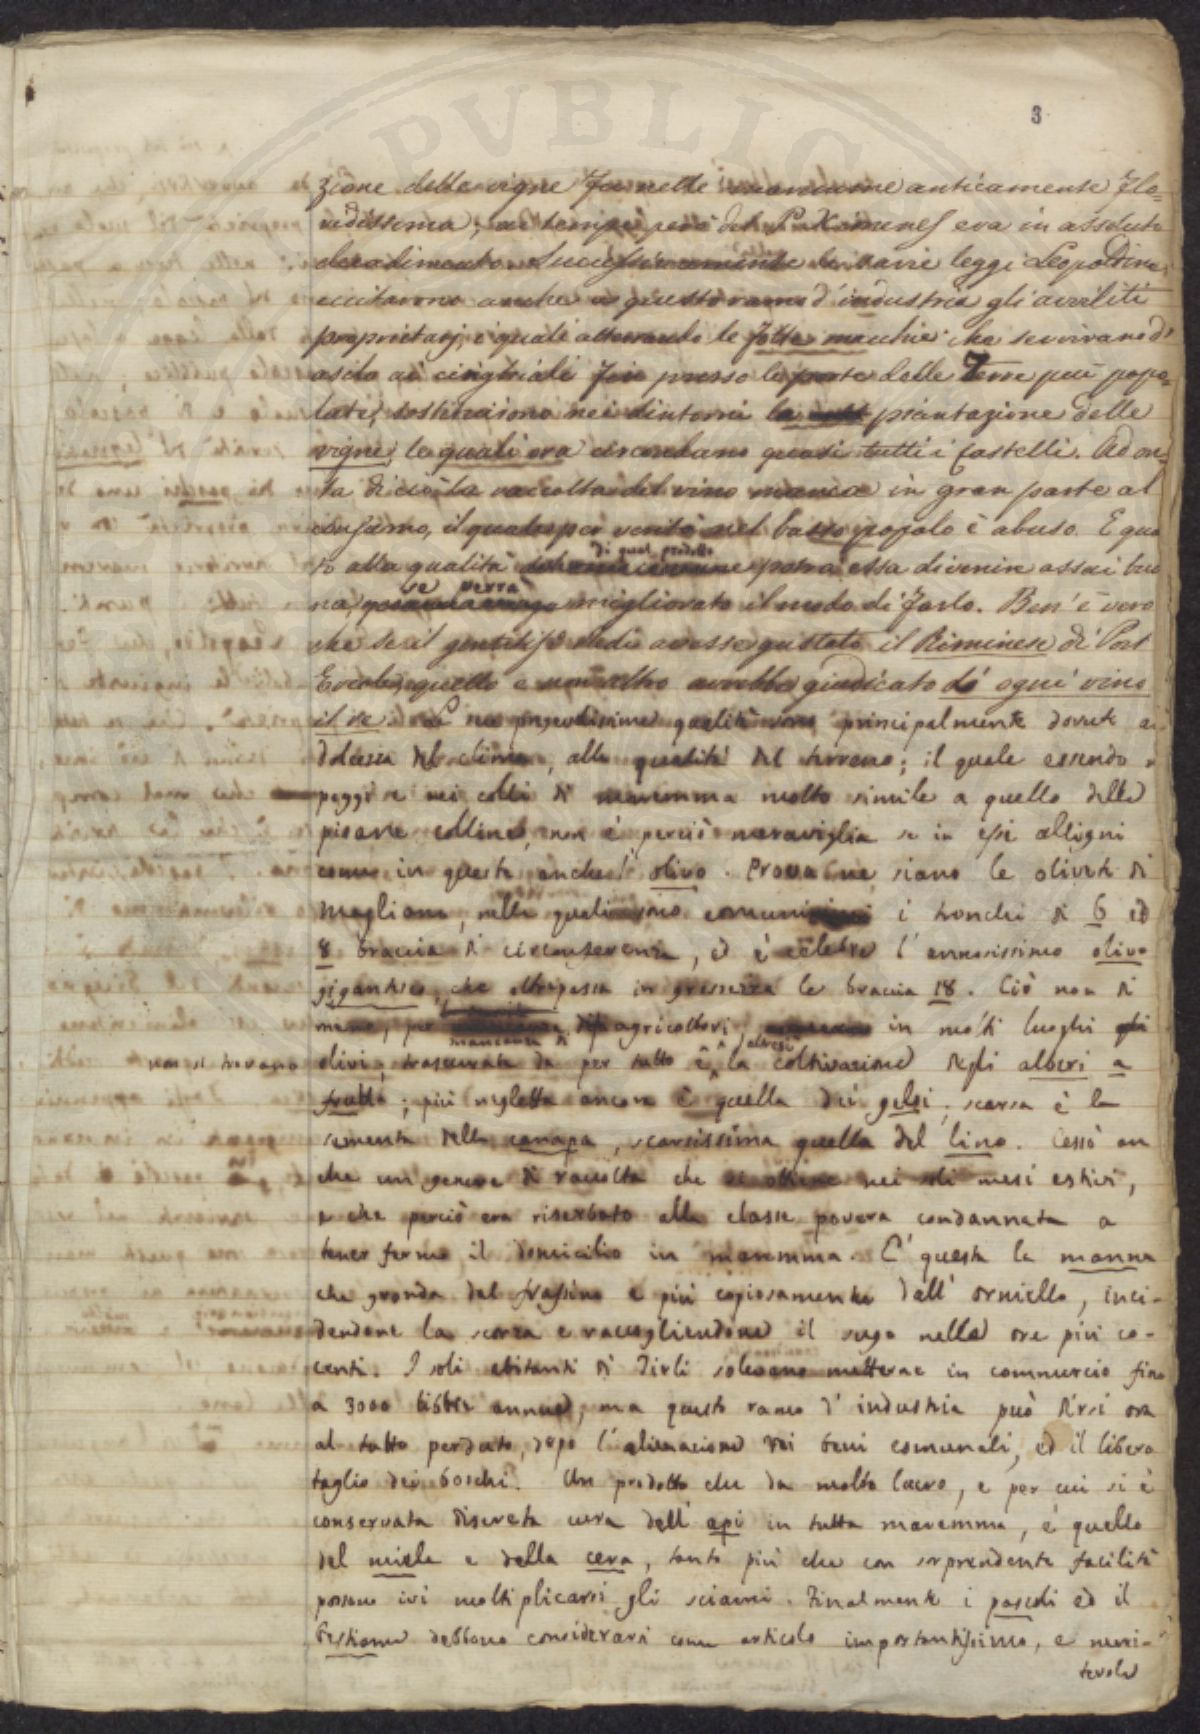 3
zione delle vigne fu nelle maremme anticamente flo-
ridissima; ai tempi però del P. Ximenes era in assoluto
decadimento. Successivamente le savie leggi Leopoldine
eccitarono anche a questo ramo d'industria gli avviliti
proprietarj, i quali atterrando le folte macchie che servivano di
asilo ai cinghiali fin presso le porte delle Terre più popo-
late, sostituirono nei dintorni la piantazione delle
vigne, le quali ora circondano quasi tutti i Castelli. Ad on-
ta di ciò la raccolta del vino manca in gran parte al
consumo, il quale per verità nel basso popolo è abuso. E qua
to alla qualità di quel prodotto potrà essa divenire assai buo
na, se verrà migliorato il modo di farlo. Ben'è vero
che se il gentil Redi avesse gustato il Riminese di Port
Ercole, quello e non altro avrebbe giudicato d'ogni vino
il re. Le sue qualità sono principalmente dovute a
dolcezza del clima, alla qualità del terreno; il quale essendo
poggi e nei colli di maremma molto simile a quello delle
pisane colline, non è perciò maraviglia se in essi alligni
come in queste anche l'olivo. Prova ne siano le olivete di
Magliano, nelle quali sono comuni i tronchi di 6 ed
8 braccia di circonferenza, ed è celebre l'annosissimo olivo
gigantesco, che oltrepassa in grossezza le braccia 18. Ciò non di
meno, per mancanza di agricoltori, in molti luoghi gli
non si trovano olivi; trascurata da per tutto è altresì la coltivazione degli alberi a
frutto; più negletta ancora è quella dei gelsi; scarsa è la
sementa della canapa, scarsissima quella del lino. Cessò an
che un genere di raccolta che si ottiene nei soli mesi estivi,
e che perciò era riserbato alla classe povera condannata a
tener fermo il domicilio in maremma. E' questa la manna
che gronda dal frassino e più copiosamente dall'orniello, inci-
dendone la scorza e raccogliendone il sugo nelle ore più co-
centi. I soli abitanti di Tirli solevano metterne in commercio fino
a 3000 libbre annue, ma questo ramo d'industria può dirsi ora
al tutto perduto, dopo l'alienazione dei beni comunali, ed il libero
taglio dei boschi. Un prodotto che da molto lucro, e per cui si è
conservata discreta cura dell'api in tutta maremma, è quello
del miele e della cera, tanto più che con sorprendente facilità
possono ivi moltiplicarsi gli sciami. Finalmente i pascoli ed il
bestiame debbono considerarsi come articolo importantissimo, e meri-
tevole